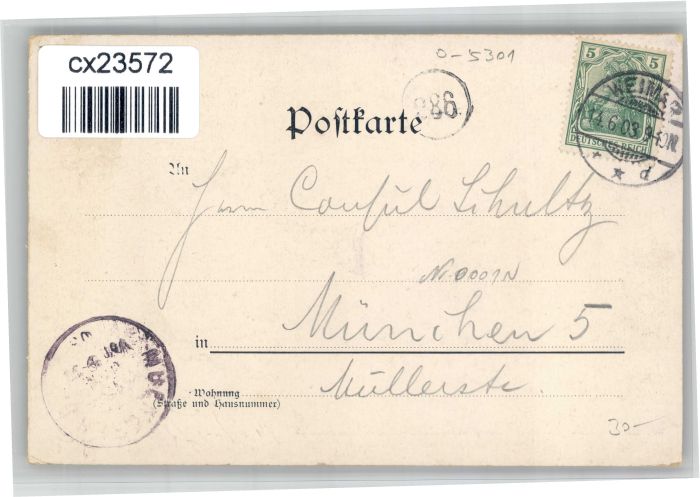 cx23572
0-5301
5
286
WEIMAR
14.6.03. 9-10N.
DEUTSCHES REICH
Poſtkarte
An
Herrn Consul Schultz
in
München 5
Müllerstr.
Wohnung
(Straße und Hausnummer)
30-